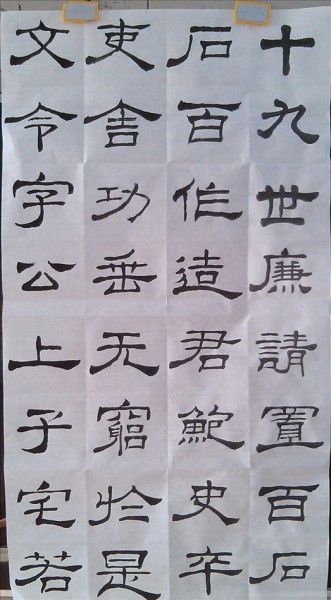 十九世廉請置百石
石百作造君鮑史卒
吏舍功垂无窮於是
文令字公上子宅若